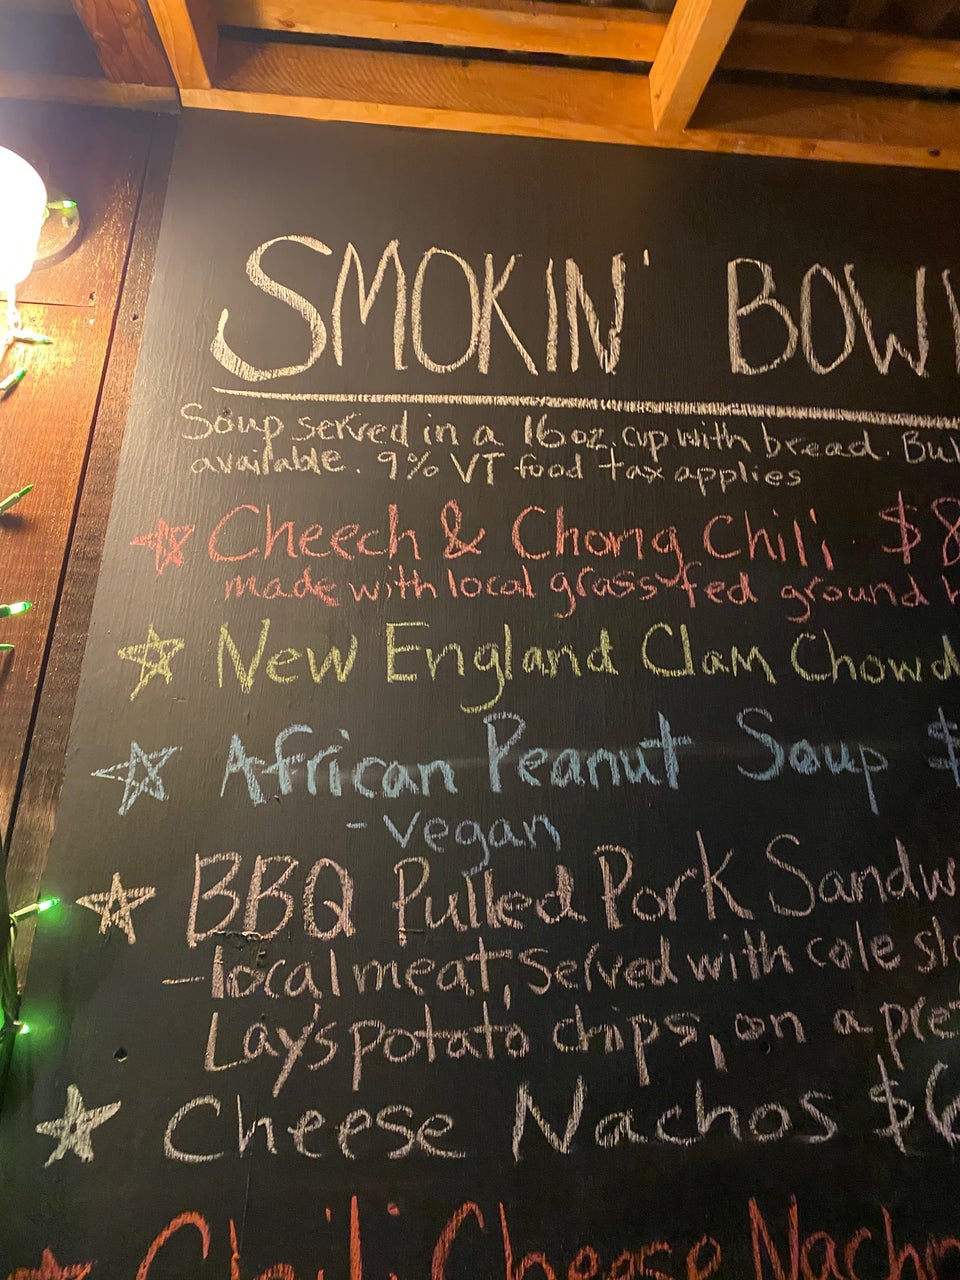 SMOKIN' BOWL
Soup served in a 16oz. cup with bread. Bul
available. 9% VT food tax applies
Cheech & Chong Chili $8
made with local grass fed ground b
New England Clam Chowd
African Peanut Soup $
-vegan
BBQ Pulled Pork Sandw
-local meat, served with cole sla
Lay's potato chips, on a pre
Cheese Nachos $6
Chili Cheese Nacho